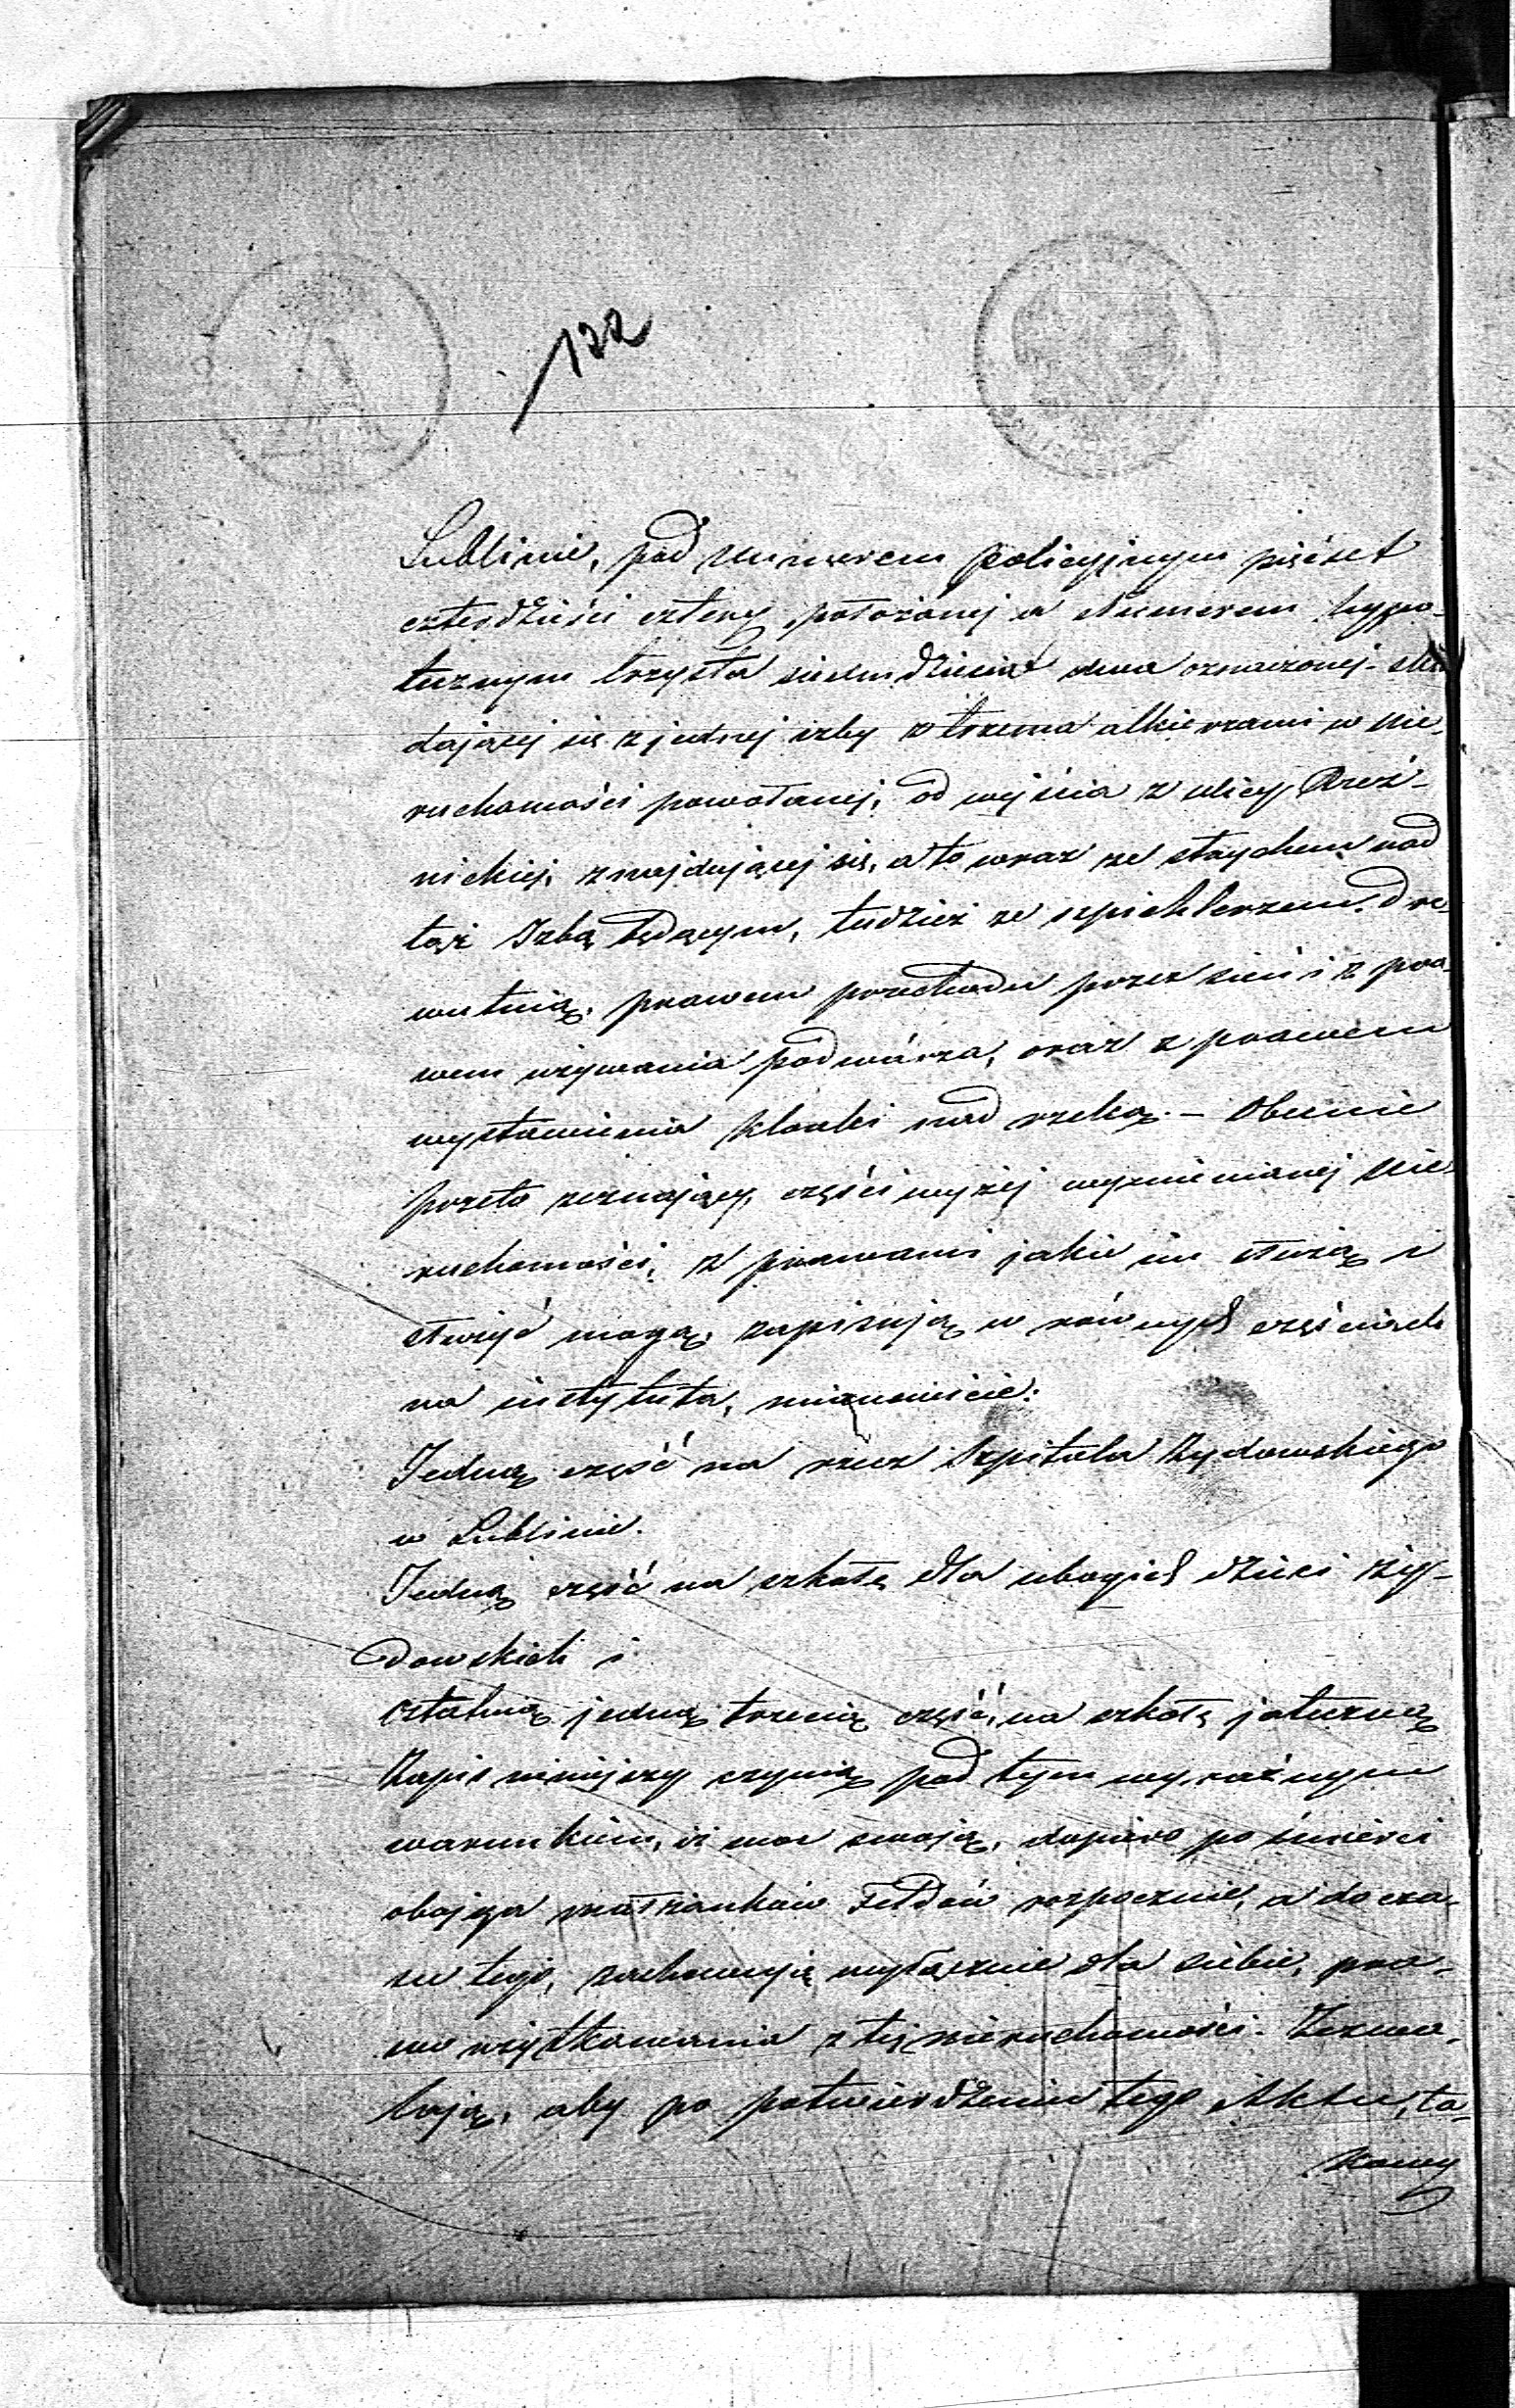 122
Lublinie, pod Numerem policyjnym pięćset
czterdzieści cztery położonej a Numerem hypo-
tecznym trzysta siedmdziesiąt dwa oznaczonej - skła
dającej się z jednej izby z trzema alkierzami w Nie-
ruchomości powołanej, od wejścia z ulicy Rzeź-
nickiej, znajdującej się, a to wraz ze strychem nad
tąż Izbą będącym, tudzież ze szpichlerzem, dre-
wutnią, prawem przechodu przez sień i z pra-
wem używania podwórza, oraz z prawem
wystawienia kloaki nad rzeką. - Obecnie
przeto zeznający, części wyżej wymienianej Nie-
ruchomości, z prawami jakie im służą i
służyć mogą, zapisują w równych częściach
na instytuta, mianowicie:
Jedną część na rzecz Szpitala Żydowskiego
w Lublinie.
Jedną część na szkołę dla ubogich dzieci ży-
dowskich i
ostatnią jedną trzecią część, na szkołę
Zapis niniejszy czynią pod tym wyraźnym
warunkiem, iż moc swoją, dopiero po śmierci
obojga małżonków Feldów rozpocznie, a do cza-
su tego, zachowują wyłącznie dla siebie, pra-
wo użytkowania z tej nieruchomości. Zezwa-
lają, aby po potwierdzeniu tego Aktu, ta-
kowy